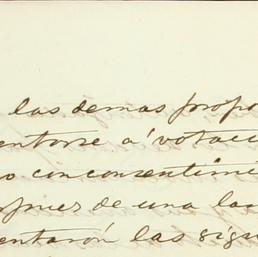 las demas propo
entarse á votac
o con consentimi
espues de una la
entaron las sigu